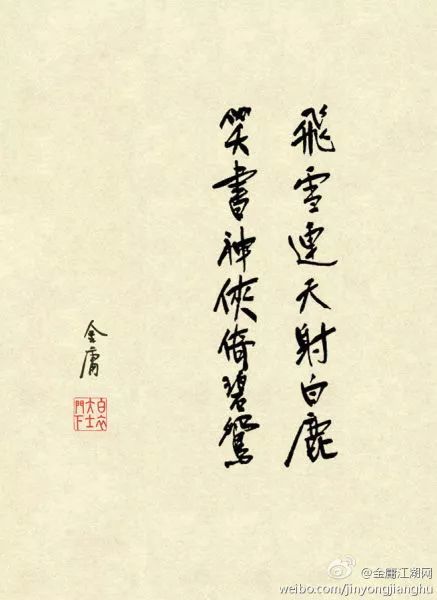 飛雪連天射白鹿
笑書神俠倚碧鴛
金庸
白衣大士門下
@金庸江湖网
weibo.com/jinyongjianghu